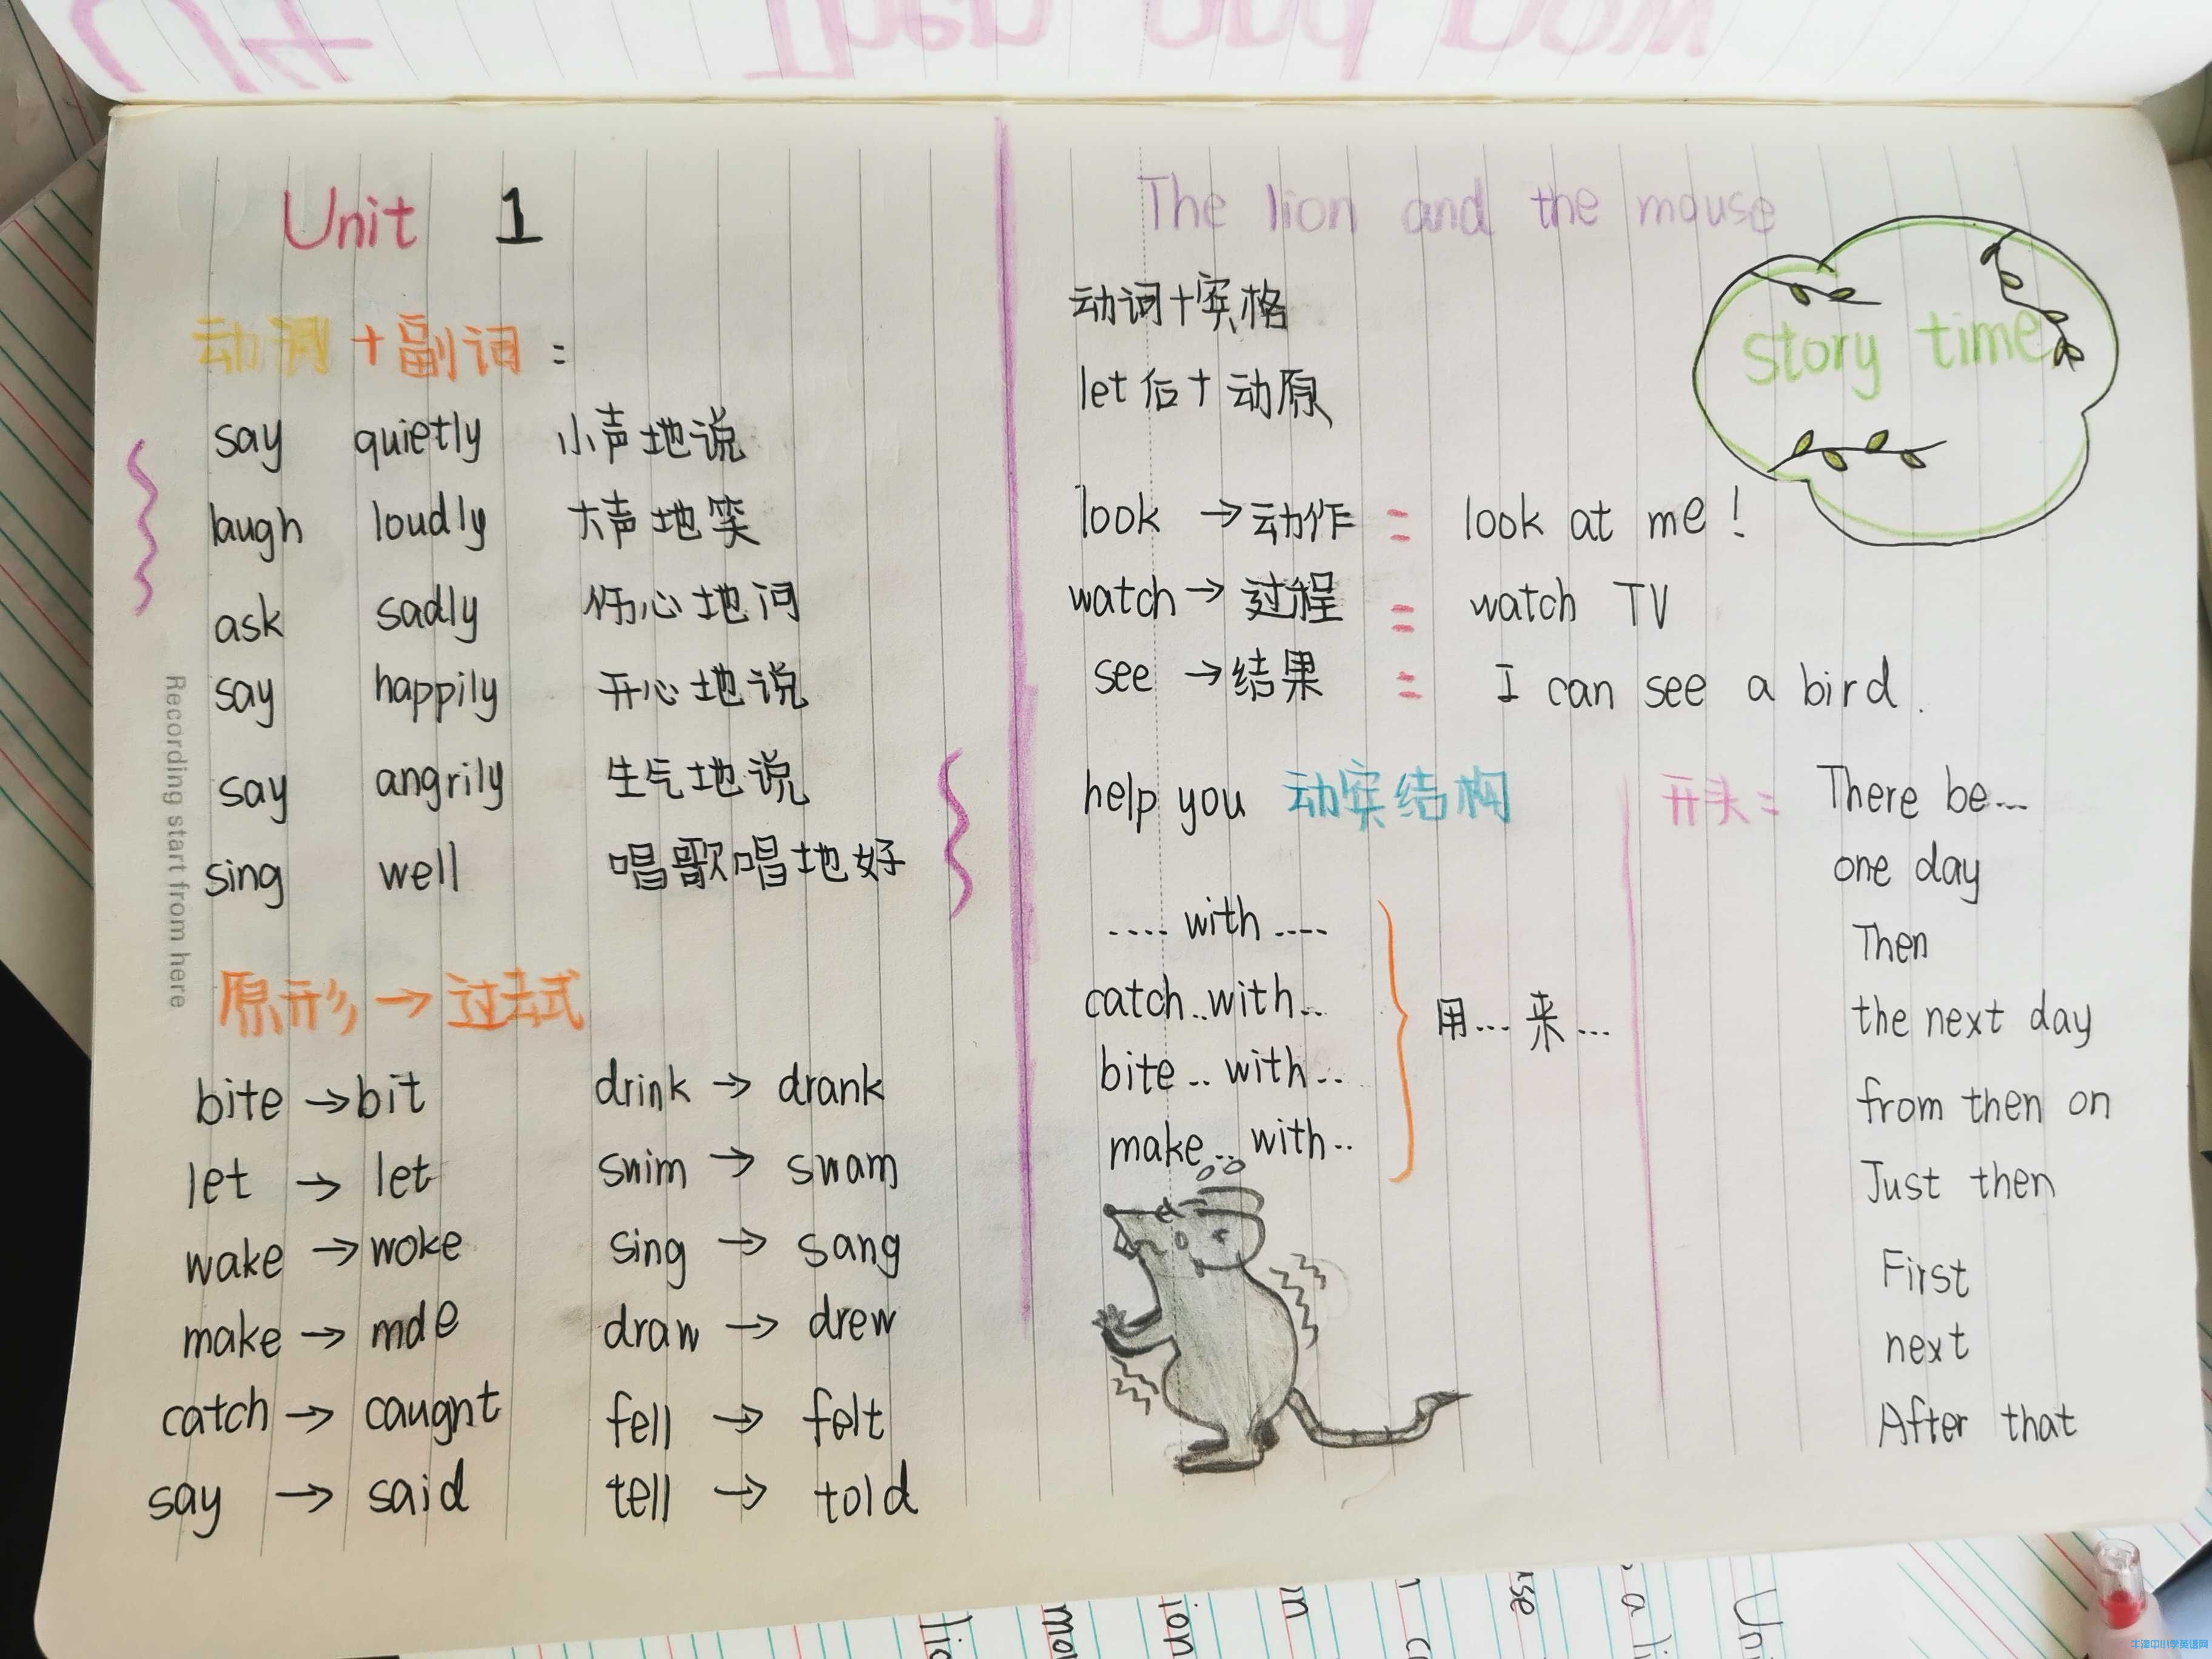 Unit 1
动词+副词:
say quietly 小声地说
laugh loudly 大声地笑
ask sadly 伤心地问
say happily 开心地说
say angrily 生气地说
sing well 唱歌唱地好
原形→过去式
bite →bit
let → let
wake →woke
make → mde
catch → caugnt
say → said
drink → drank
swim → swam
sing → sang
draw → drew
fell → felt
tell → told
Recording start from here
The lion and the mouse
story time
动词+宾格
let后+动原
look →动作 = look at me!
watch→过程 = watch TV
see →结果 = I can see a bird.
help you 动宾结构
.... with ....
catch..with..
bite..with..
make..with..
用...来...
开头: There be...
one day
Then
the next day
from then on
Just then
First
next
After that
牛津中小学英语网